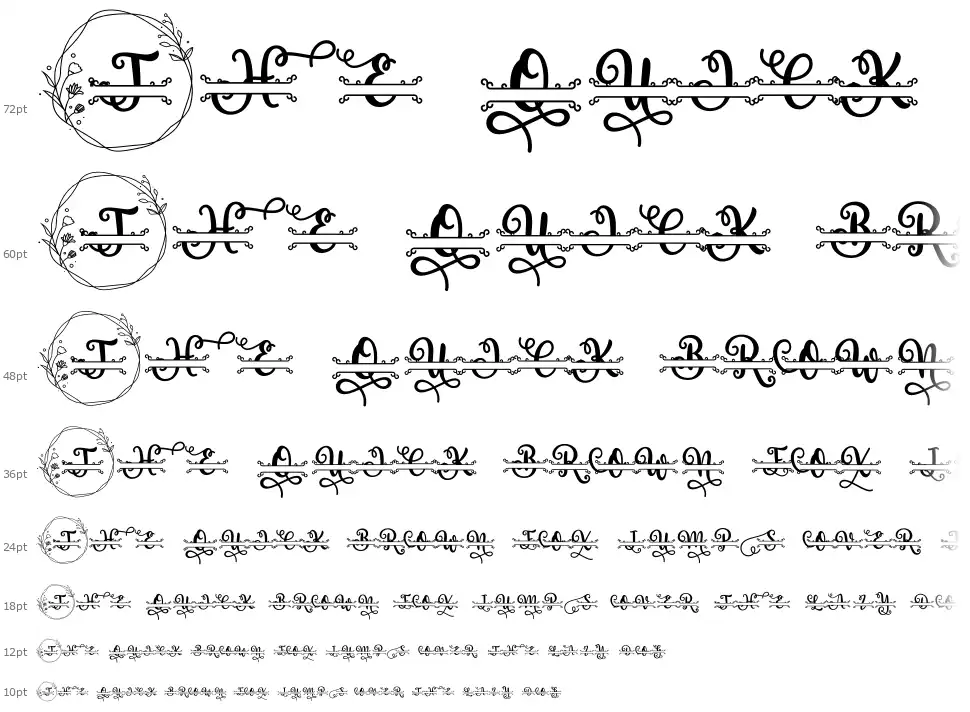 72pt THE QUICK
60pt THE QUICK BR
48pt THE QUICK BROWN
36pt THE QUICK BROWN FOX J
24pt THE QUICK BROWN FOX JUMPS OVER T
18pt THE QUICK BROWN FOX JUMPS OVER THE LAZY DO
12pt THE QUICK BROWN FOX JUMPS OVER THE LAZY DOG
10pt THE QUICK BROWN FOX JUMPS OVER THE LAZY DOG